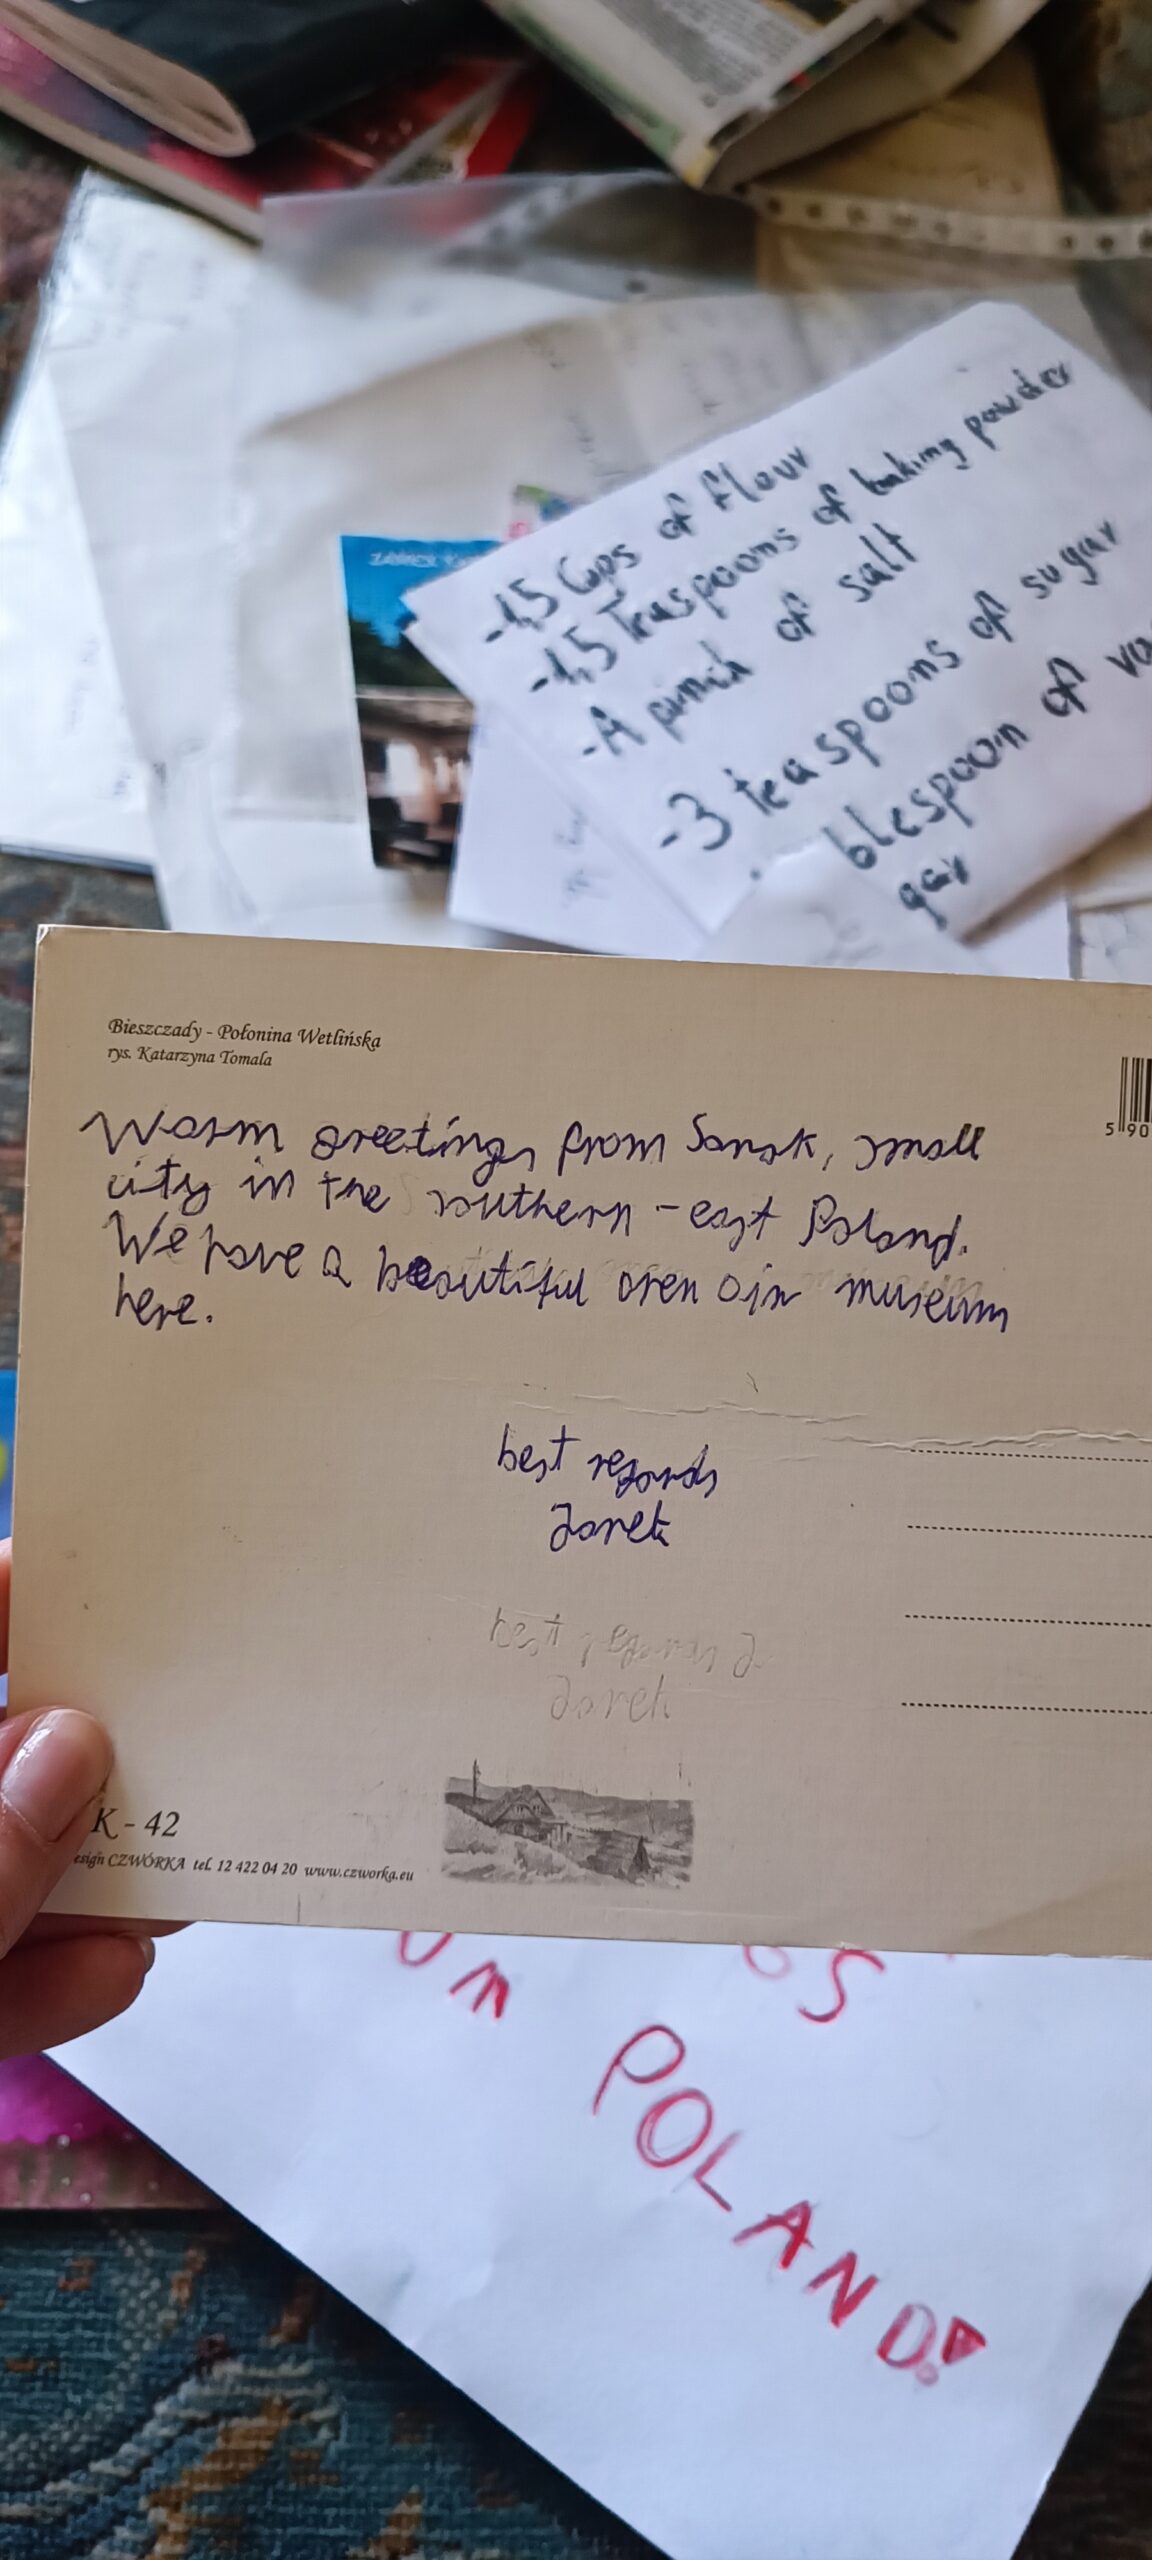 -1,5 Cups of flour
-1,5 Teaspoons of baking powder
-A pinch of salt
-3 teaspoons of sugar
blespoon of va
gar
Bieszczady - Połonina Wetlińska
rys. Katarzyna Tomala
5 90
Warm greetings from Sanok, small
city in the southern-east Poland.
We have a beautiful open air museum
here.
best regards
Jarek
best regards J
Jarek
K - 42
esign CZWÓRKA tel. 12 422 04 20 www.czworka.eu
POLAND!